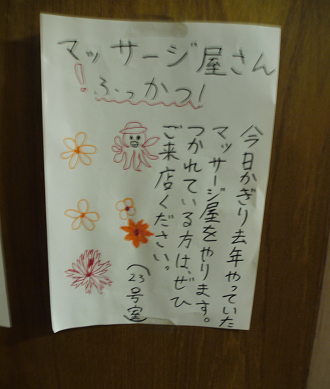 マッサージ屋さん
！ふっかつ！
今日かぎり去年やっていた
マッサージ屋をやります。
つかれている方は、ぜひ
ご来店ください。
(23号室)